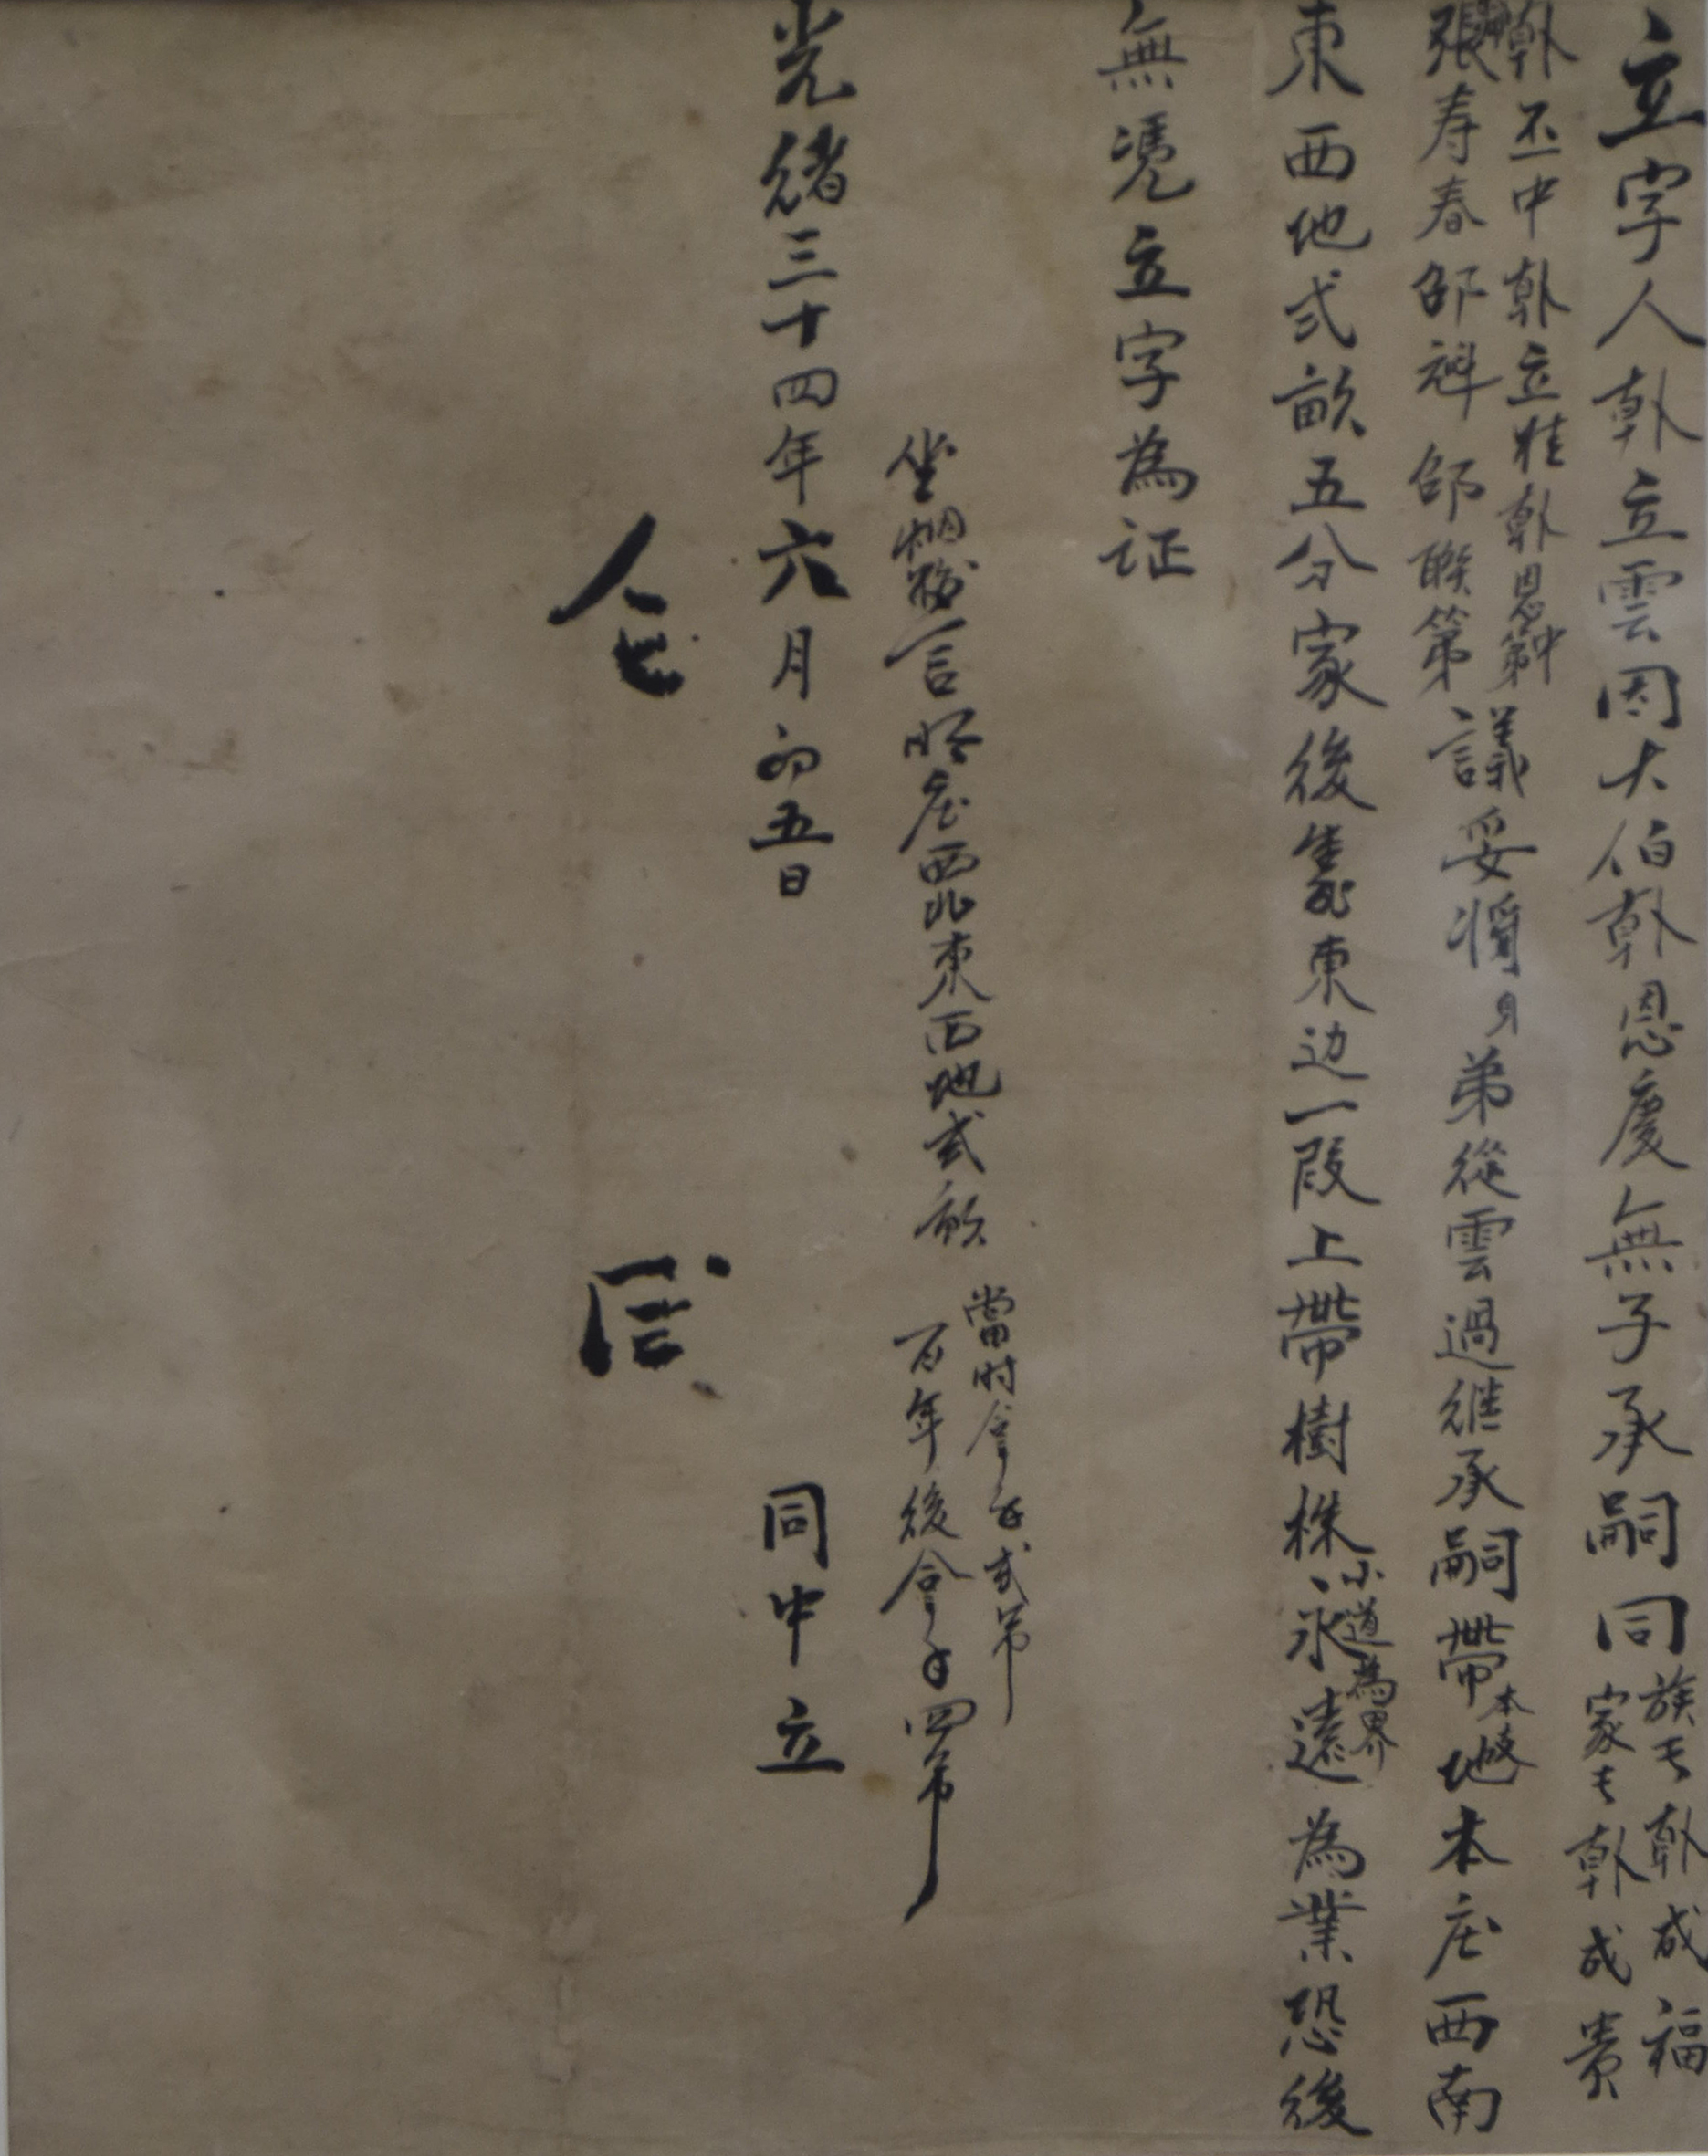 立字人郭立雲因大伯郭恩慶無子承嗣同
族長郭成福
家長郭成貴
郭丕中郭立桂郭恩第中
張寿春邵祥邵聯第
議妥將身弟從雲過継承嗣帶地本庄西南
本庄
東西地弍畝五分家後東边一段上帶樹株永遠為業恐後
小道為界
無凴立字為証
言明庄西北東西地弍畝
當时拿錢弍吊
百年後拿錢四吊
光緒三十四年六月初五日
同中立
仝